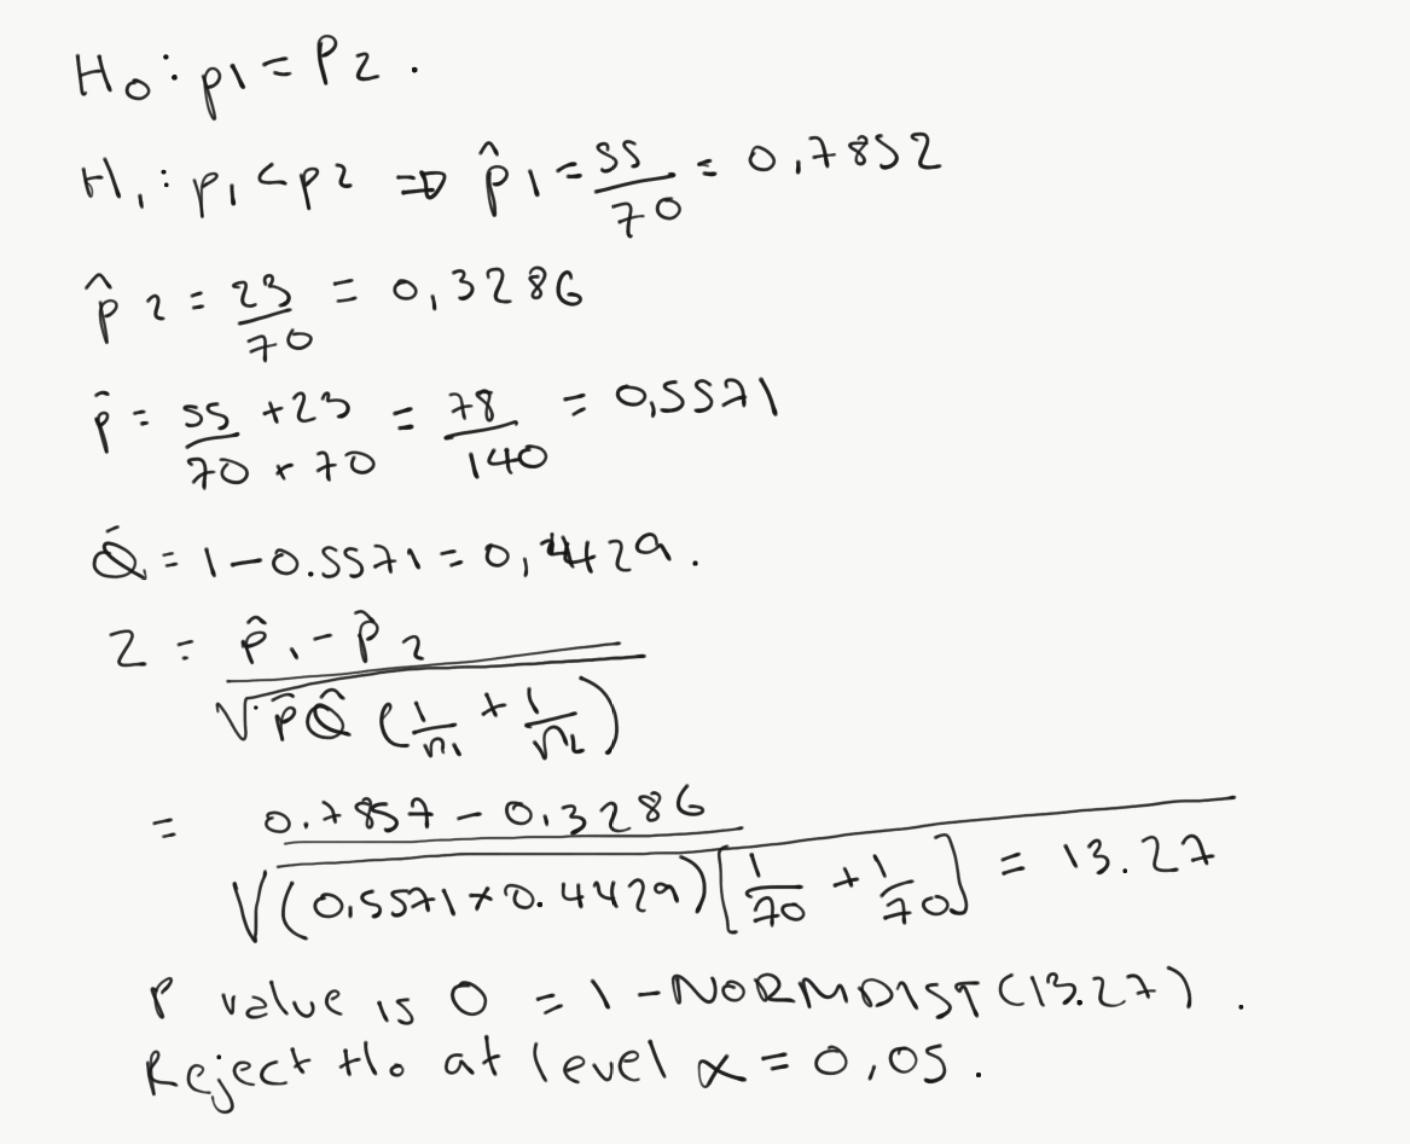 H₀: p1 = P2.
H₁: p₁ < p2 ⇒ p̂1 = 55/70 = 0,7852
p̂2 = 23/70 = 0,3286
p̄ = 55+23/70+70 = 78/140 = 0,5571
Q̄ = 1-0.5571 = 0,4429.
Z = p̂₁-p̂₂/√p̄Q̂(1/n₁ + 1/n₂)
= 0.7857-0,3286/√(0,5571×0.4429)[1/70 + 1/70] = 13.27
P value is 0 = 1-NORMDIST(13.27).
Reject H₀ at level α = 0,05.